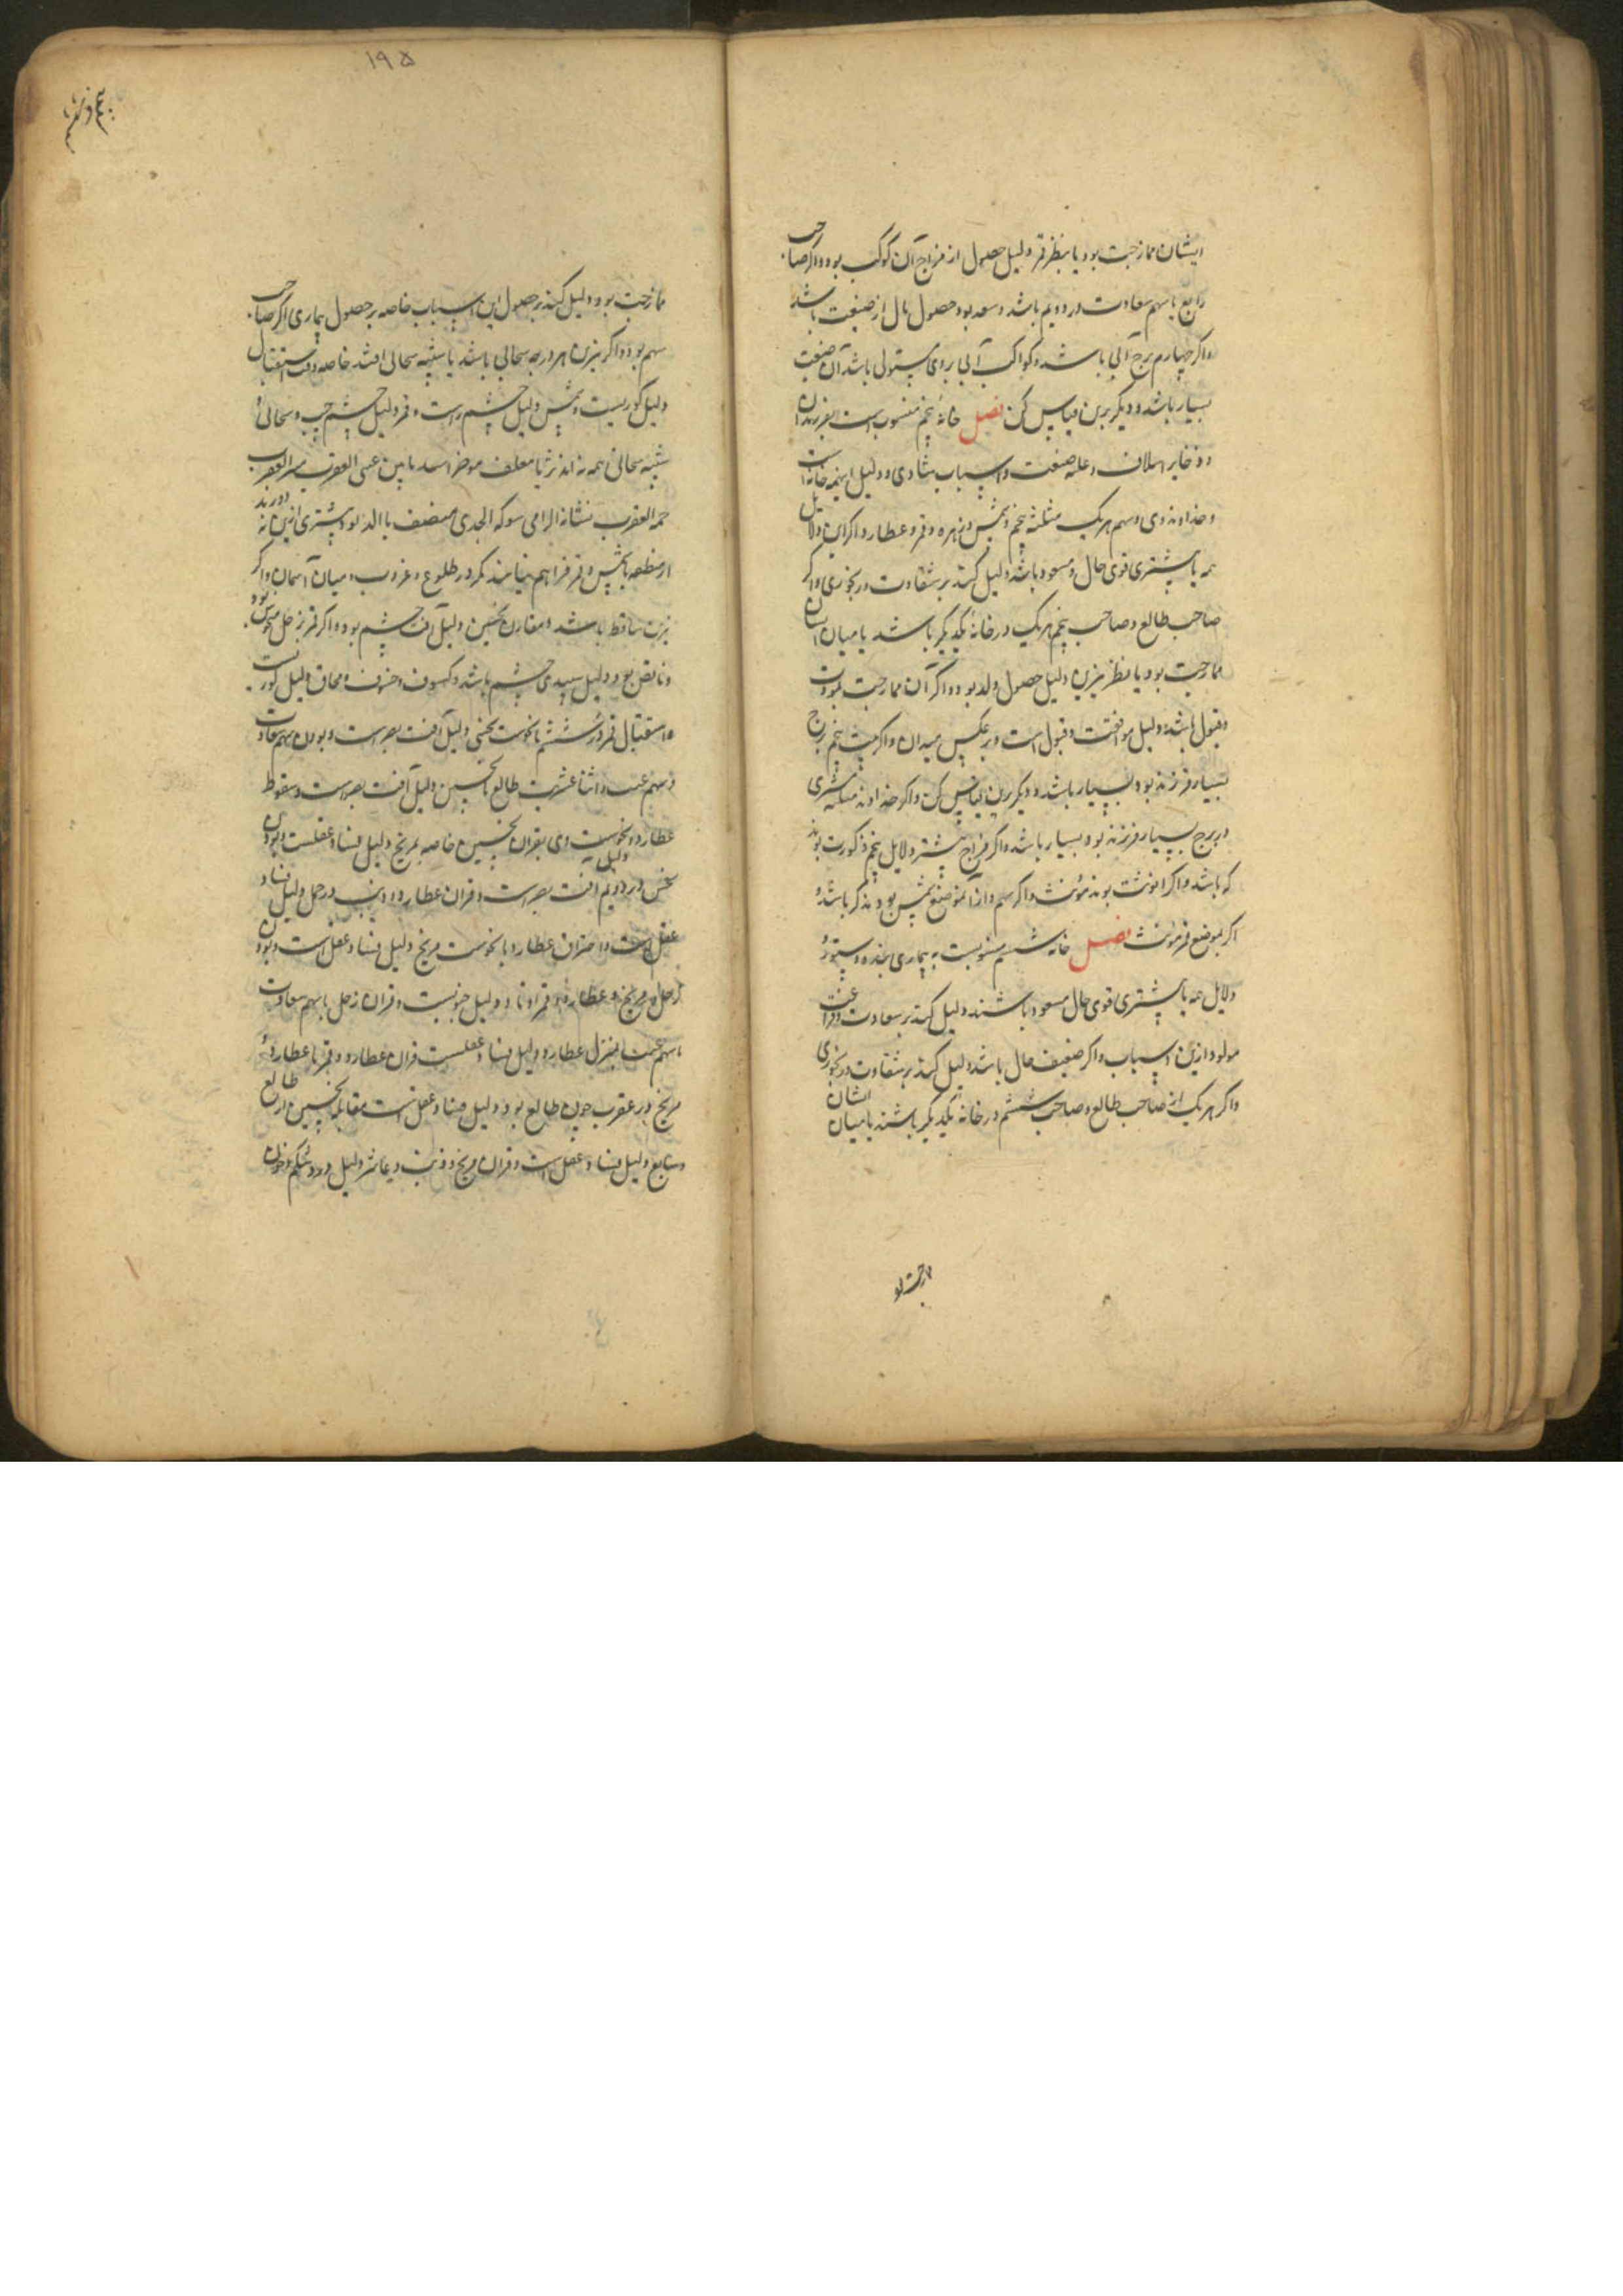 ایشان ممازجت بود یا بنظر قمر دلیل حصول از مزاج آن کوکب بود و اکر صاحب
رابع با سهم سعادت در دویم باشد و سعد بود حصول مال از ضیعت باشد
و اکر چهارم برج آبی باشد و کواکب آبی بروی مستولی باشد آن ضیعت
بسیار باشد و دیکر برین قیاس کن فصل خانهٔ پنجم منسوب است بفرزندان
و ذخایر اسلاف و غله ضیعت و اسباب شادی و دلیل اینهمه خانه است
و خداوند وی و سهم هر یک مثلثه پنجم و شمس و زهره و قمر و عطارد اکر این دلایل
همه یا بیشتری قوی حال و مسعود باشد دلیل کند بر شقاوت و رنجوری و اکر
صاحب طالع و صاحب پنجم هر یک در خانهٔ یکدیکر باشد یا میان ایشان
ممازجت بود یا بنظر نیرین دلیل حصول ولد بود و اکر آن ممازجت بمودت
و قبول باشد دلیل موافقت و قبول است و بر عکس میدان و اکر بیت پنجم برج
بسیار فرزند بود بسیار باشد و دیکر برین قیاس کن و اکر خداوند مثلثه مشتری
در برج بسیار فرزند بود بسیار باشد و اکر مزاج بیشتر دلایل پنجم ذکورت بود
که باشد و اکر انوثت بود مؤنث و اکر سهم و از آنموضع شمس بود مذکر باشد و
اکر بموضع قمر مؤنث فصل خانه ششم منسوبست به بیماری بنده و ستور و
دلایل همه یا بیشتری قوی حال مسعود باشند دلیل کند بر سعادت و فراغت
مولود ازین اسباب و اکر ضعیف حال باشد دلیل کند بر شقاوت و رنجوری
و اکر هر یک از صاحب طالع و صاحب ششم در خانهٔ یکدیکر باشند یا میان ایشان
ممازجت بود
۱۹۵
ممازجت بود دلیل کند بر حصول این اسباب خاصه بر حصول بیماری اکر صاحب
سهم بود و اکر نیرین هر درجه سحابی باشد یا شبه سحابی افتد خاصه وقت استقبال
دلیل کوریست و شمس دلیل چشم راست و قمر دلیل چشم چپ و سحابی و
شبه سحابی همه نه اند ثریا معلف موخر اسد ما بین عینی العقرب
حمه العقرب نشانه الرامی سوکه الجدی منصف با الدلو و مشتری ازین نه
باشمس و قمر فراهم نیایند مکر در طلوع و غروب و میان آسمان و اکر
نیرین ساقط باشد و مقارن نحسین دلیل آفت چشم بود و اکر قمر بزحل منحوس بود
و ناقص بود دلیل سپیدی چشم باشد و کسوف و خسوف و محاق دلیل کوریست
و استقبال قمر در ششم با نحوست نحسی دلیل آفت بصر است و بودن سهم سعادت
و سهم غیب و اثنا عشریت طالع با نحسین دلیل آفت بصر است و سقوط
عطارد و نحوست وی بقران نحسین خاصه بمریخ دلیل فساد عقلست و بودن
نحس در دویم دلیل آفت بصر است و قران عطارد و ذنب در حمل دلیل فساد
عقل است و احتراق عطارد با نحوست مریخ دلیل فساد عقل است و بودن
زحل و مریخ و عطارد و قمر اوتاد دلیل جنونست و قران زحل با سهم سعادت
با سهم غیب بمنزل عطارد دلیل فساد عقلست قران عطارد و قمر با عطارد و
مریخ در عقرب چون طالع بود دلیل فساد عقل است مقابله نحسین از طالع
و سابع دلیل فساد عقل است و قران مریخ و ذنب در عاشر دلیل درد شکم و خون